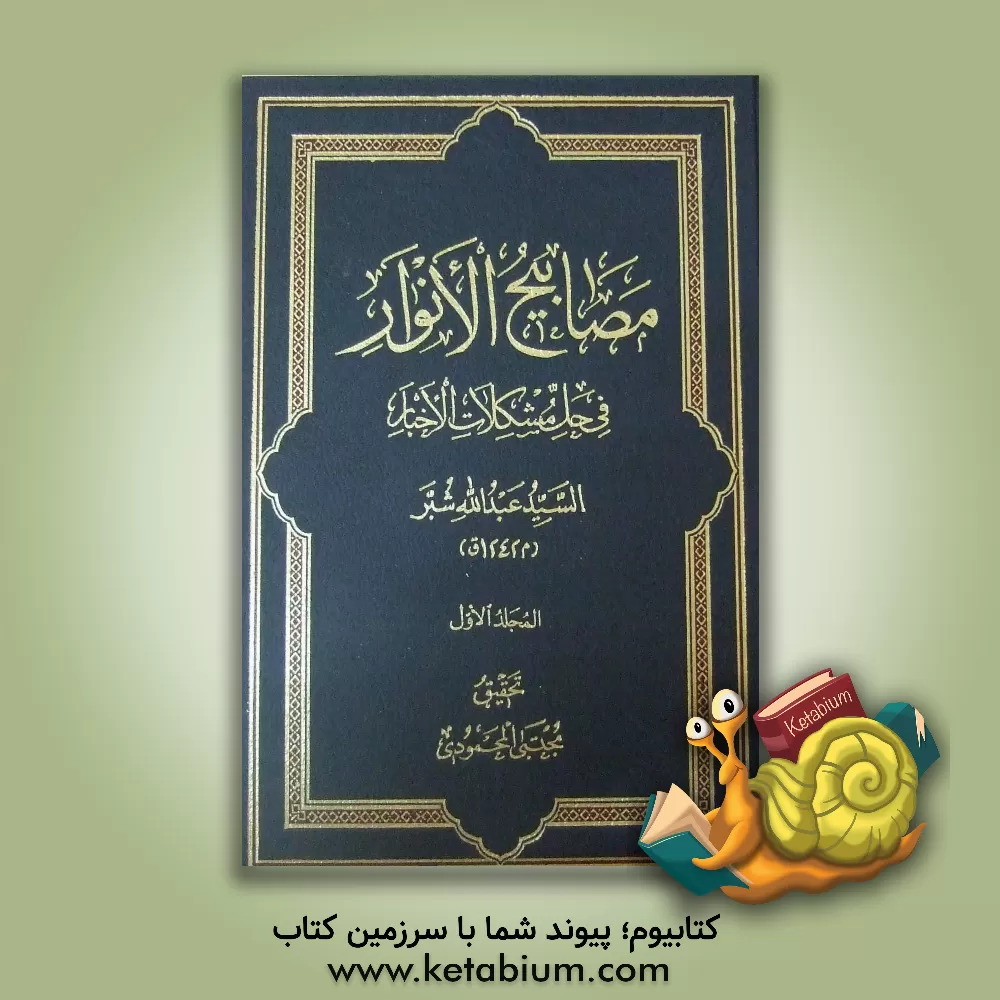 مَصَابِيحُ الْأَنْوَارِ
فِي حَلِّ مُشْكِلَاتِ الْأَخْبَارِ
السَّيِّدُ عَبْدُ اللّٰهِ شُبَّر
(م١٢٤٢ق)
المُجَلَّدُ الأَوَّل
تَحْقِيقُ
مُجْتَبَى الْمَحْمُودِي
Ketabium
کتابیوم؛ پیوند شما با سرزمین کتاب
www.ketabium.com